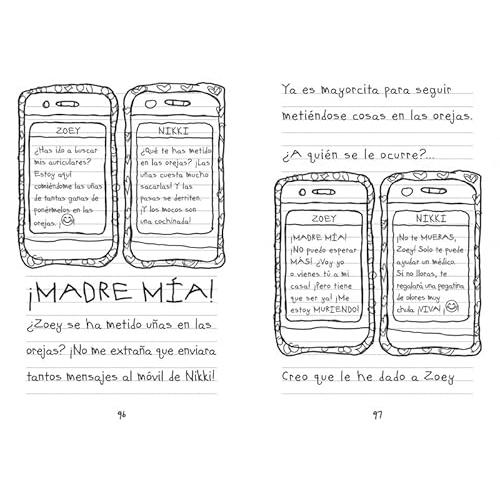 ZOEY
¿Has ido a buscar
mis auriculares?
Estoy aquí
comiéndome las uñas
de tantas ganas de
ponérmelos en las
orejas. ¡
NIKKI
¿Qué te has metido
en las orejas? ¡Las
uñas cuesta mucho
sacarlas! Y las
pasas se derriten.
¡Y los mocos son
una cochinada!
¡MADRE MÍA!
¿Zoey se ha metido uñas en las
orejas? ¡No me extraña que enviara
tantos mensajes al móvil de Nikki!
96
Ya es mayorcita para seguir
metiéndose cosas en las orejas.
¿A quién se le ocurre?...
ZOEY
¡MADRE MÍA!
¡No puedo esperar
MÁS! ¿Voy yo
o vienes tú a mi
casa? ¡Pero tiene
que ser ya! ¡Me
estoy MURIENDO!
NIKKI
¡No te MUERAS,
Zoey! Solo te puede
ayudar un médico.
Si no lloras, te
regalará una pegatina
de olores muy
chula. ¡VIVA! ¡
Creo que le he dado a Zoey
97